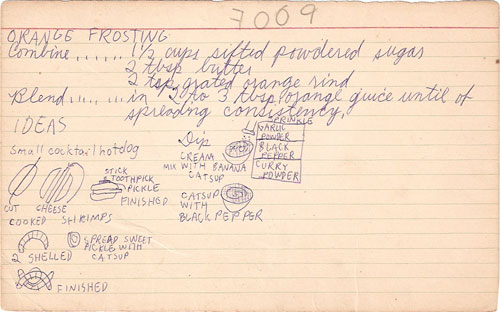 7009
ORANGE FROSTING
Combine...... 1 1/2 cups sifted powdered sugar
2 tbsp butter
2 tsp grated orange rind
Blend...... in 2 to 3 tbsp orange juice until of
spreading consistency.
IDEAS
small cocktail hotdog
CUT
CHEESE
STICK
TOOTHPICK
PICKLE
FINISHED
Dip
CREAM
MIX WITH BANANA
CATSUP
SPRINKLE
GARLIC
POWDER
BLACK
PEPPER
CURRY
POWDER
CATSUP
WITH
BLACK PEPPER
COOKED SHRIMPS
2 SHELLED
SPREAD SWEET
PICKLE WITH
CATSUP
FINISHED